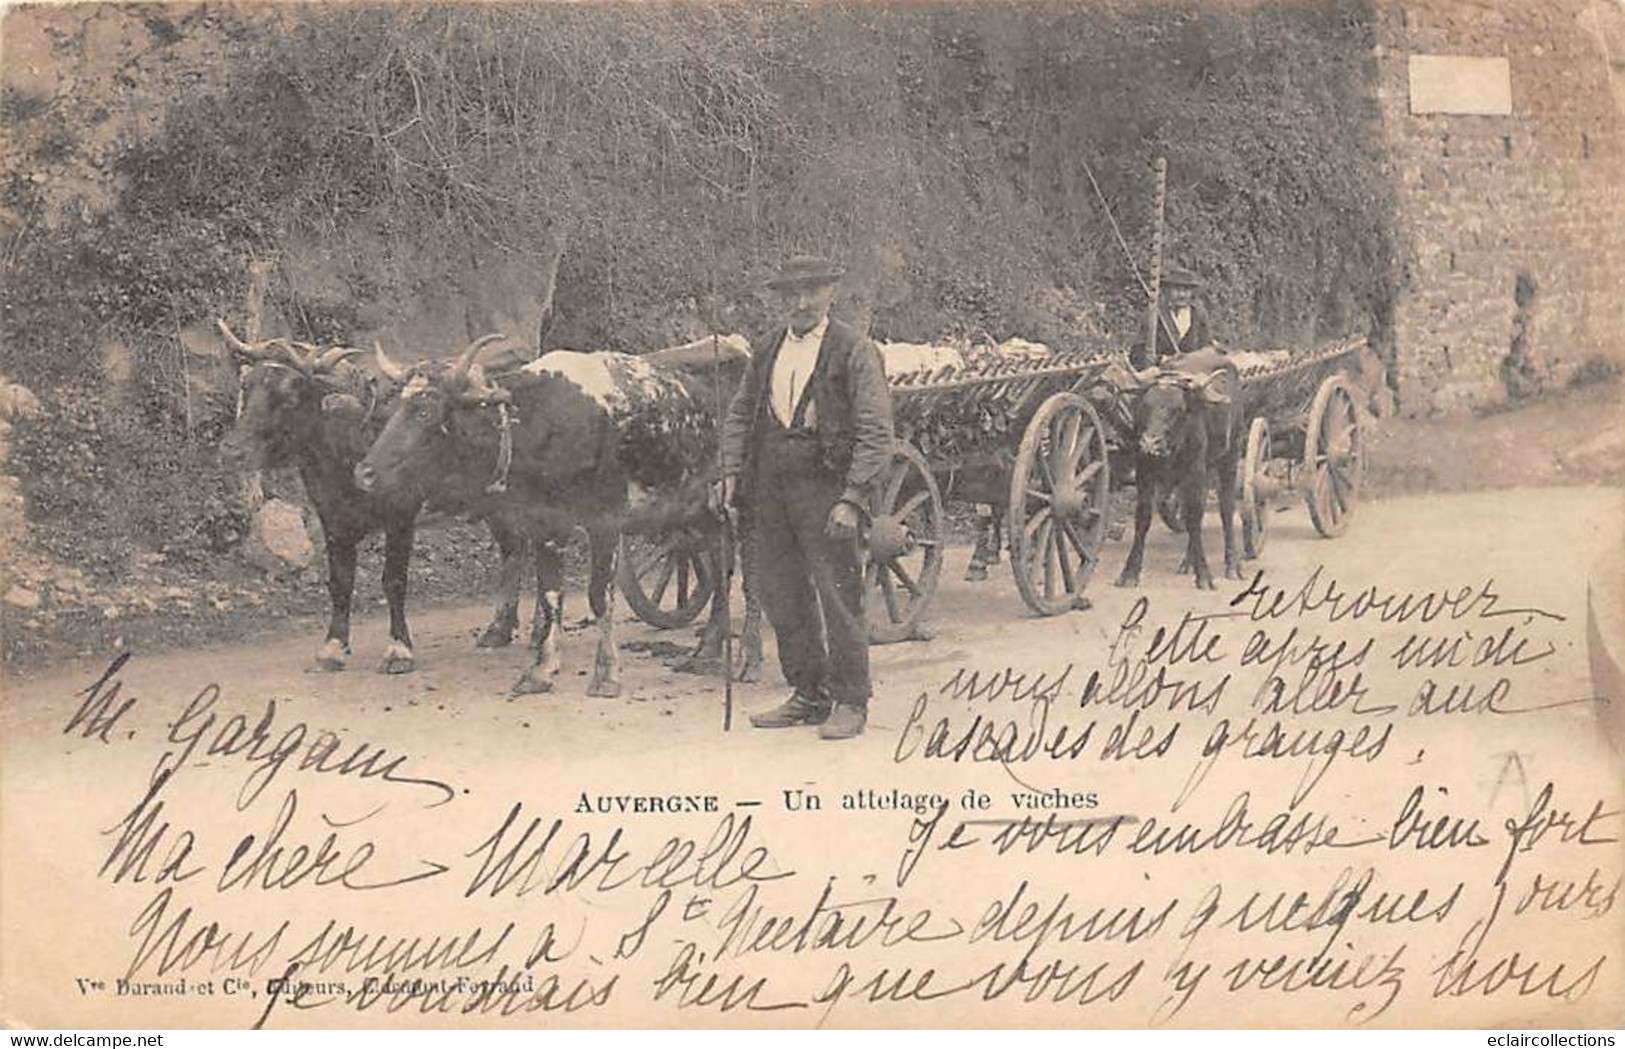 retrouver
Cette après midi
nous allons aller aux
Cascades des granges.
M. Gargam.
AUVERGNE — Un attelage de vaches
Ma chère Marcelle Je vous embrasse bien fort
Nous sommes a St Nectaire depuis quelques jours
Vve Durand et Cie, Editeurs, Clermont-Ferrand
Je voudrais bien que vous y veniez nous
delcampe.net
eclaircollections